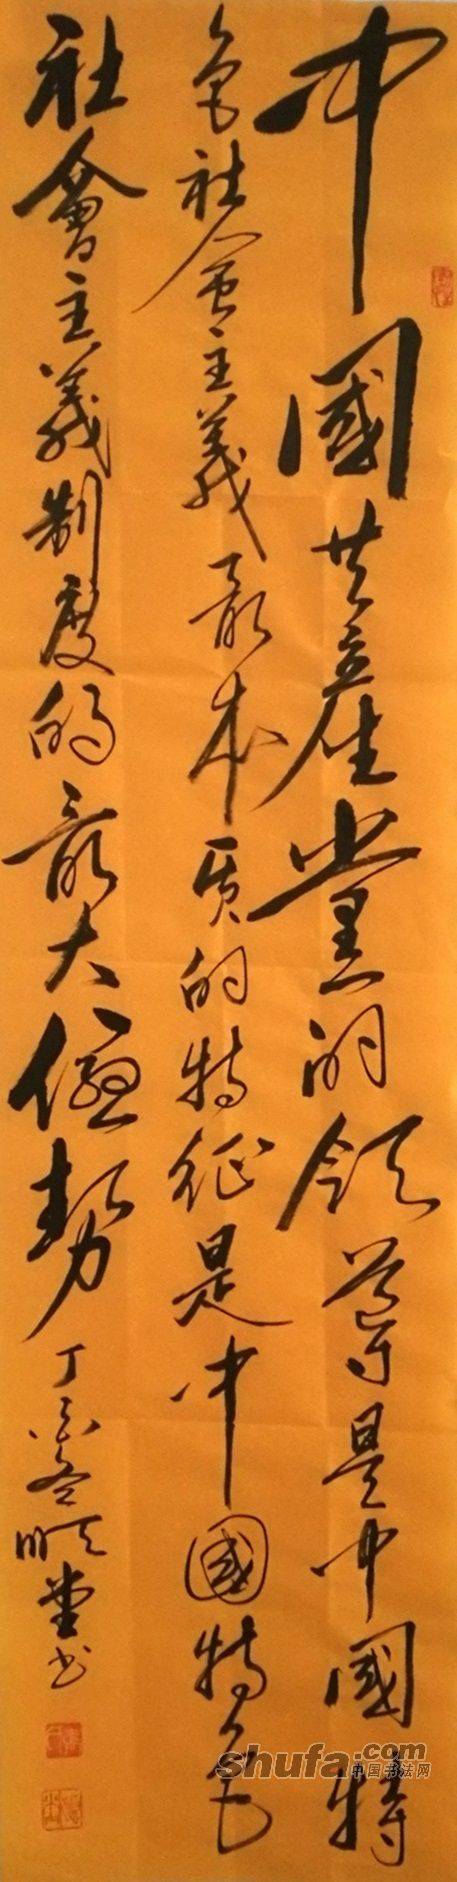 中國共產黨的领導是中國特
色社会主義最本质的特征是中國特色
社會主義制度的最大優勢
丁酉冬順堂书
shufa.com
中国书法网